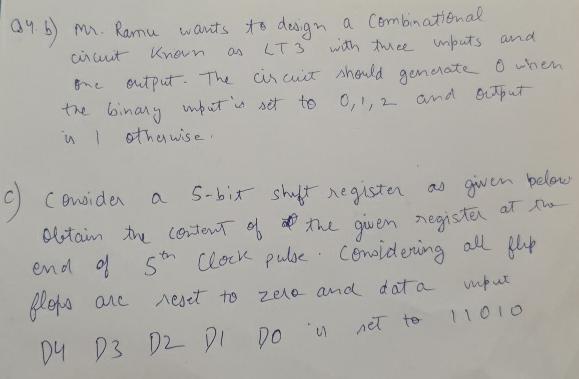 Q4. b) Mr. Ramu wants to design a Combinational
circuit Known as LT3 with three inputs and
one output. The circuit should generate 0 when
the binary input is set to 0,1,2 and output
is 1 otherwise.
c) Consider a 5-bit shift register as given below
Obtain the content of the given register at the
end of 5th Clock pulse. Considering all flip
flops are reset to zero and data input
D4 D3 D2 D1 D0 is set to 11010